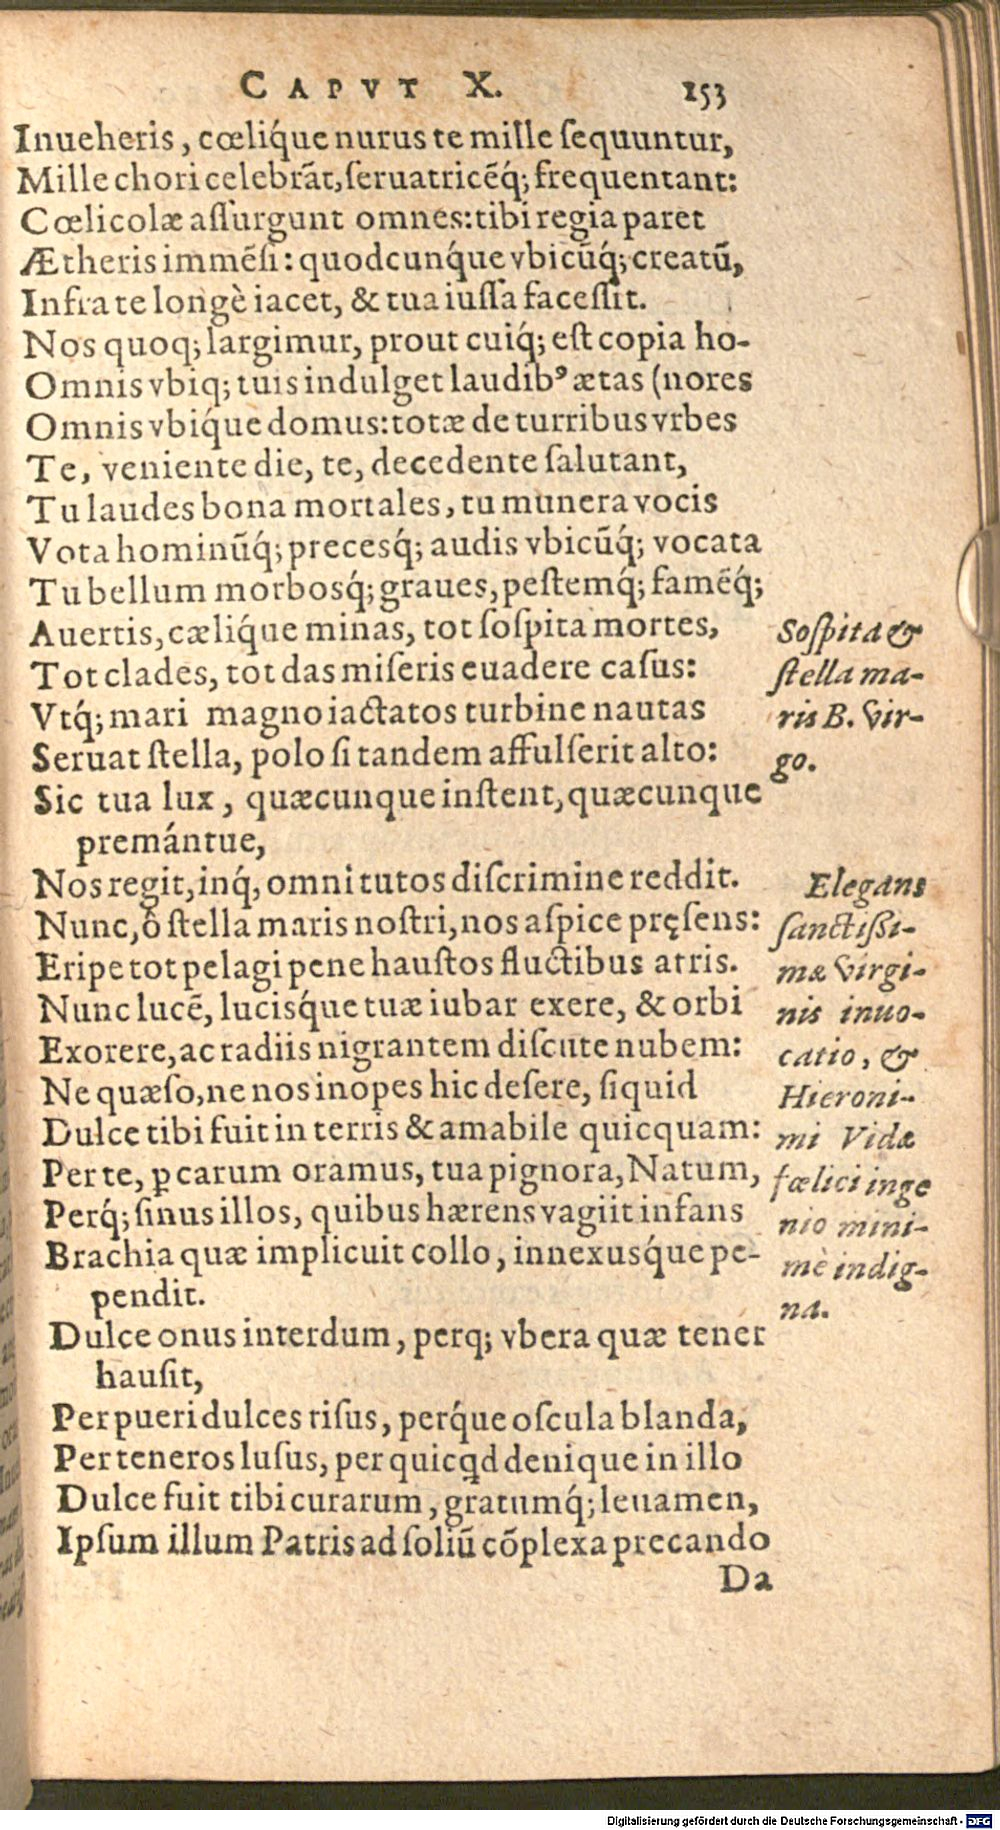 CAPVT X. 153
Inueheris, cœliq́ue nurus te mille ſequuntur,
Mille chori celebrãt, ſeruatricẽq́; frequentant:
Cœlicolæ aſſurgunt omnes: tibi regia paret
Ætheris immẽſi: quodcunq́ue vbicũq́; creatũ,
Infra te longè iacet, & tua iuſſa faceſſit.
Nos quoq; largimur, prout cuiq́; eſt copia ho-
Omnis vbiq; tuis indulget laudibꝰ ætas (nores
Omnis vbiq́ue domus: totæ de turribus vrbes
Te, veniente die, te, decedente ſalutant,
Tu laudes bona mortales, tu munera vocis
Vota hominũq́; precesq́; audis vbicũq́; vocata
Tu bellum morbosq́; graues, peſtemq́; famẽq́;
Auertis, cæliq́ue minas, tot ſoſpita mortes,
Tot clades, tot das miſeris euadere caſus:
Vtq́; mari magno iactatos turbine nautas
Seruat ſtella, polo ſi tandem affulſerit alto:
Sic tua lux, quæcunque inſtent, quæcunque
premántue,
Nos regit, inq́, omni tutos diſcrimine reddit.
Nunc, ô ſtella maris noſtri, nos aſpice pręſens:
Eripe tot pelagi pene hauſtos fluctibus atris.
Nunc lucẽ, lucisq́ue tuæ iubar exere, & orbi
Exorere, ac radiis nigrantem diſcute nubem:
Ne quæſo, ne nos inopes hic deſere, ſiquid
Dulce tibi fuit in terris & amabile quicquam:
Per te, ꝑ carum oramus, tua pignora, Natum,
Perq́; ſinus illos, quibus hærens vagiit infans
Brachia quæ implicuit collo, innexusq́ue pe-
pendit.
Dulce onus interdum, perq; vbera quæ tener
hauſit,
Per pueri dulces riſus, perq́ue oſcula blanda,
Per teneros luſus, per quicqd denique in illo
Dulce fuit tibi curarum, gratumq́; leuamen,
Ipſum illum Patris ad ſoliũ cõplexa precando
Da
Soſpita &
ſtella ma-
ris B. Vir-
go.
Elegans
ſanctiſſi-
mæ Virgi-
nis inuo-
catio, &
Hieroni-
mi Vidæ
fœlici inge
nio mini-
mè indig-
na.
Digitalisierung gefördert durch die Deutsche Forschungsgemeinschaft - DFG